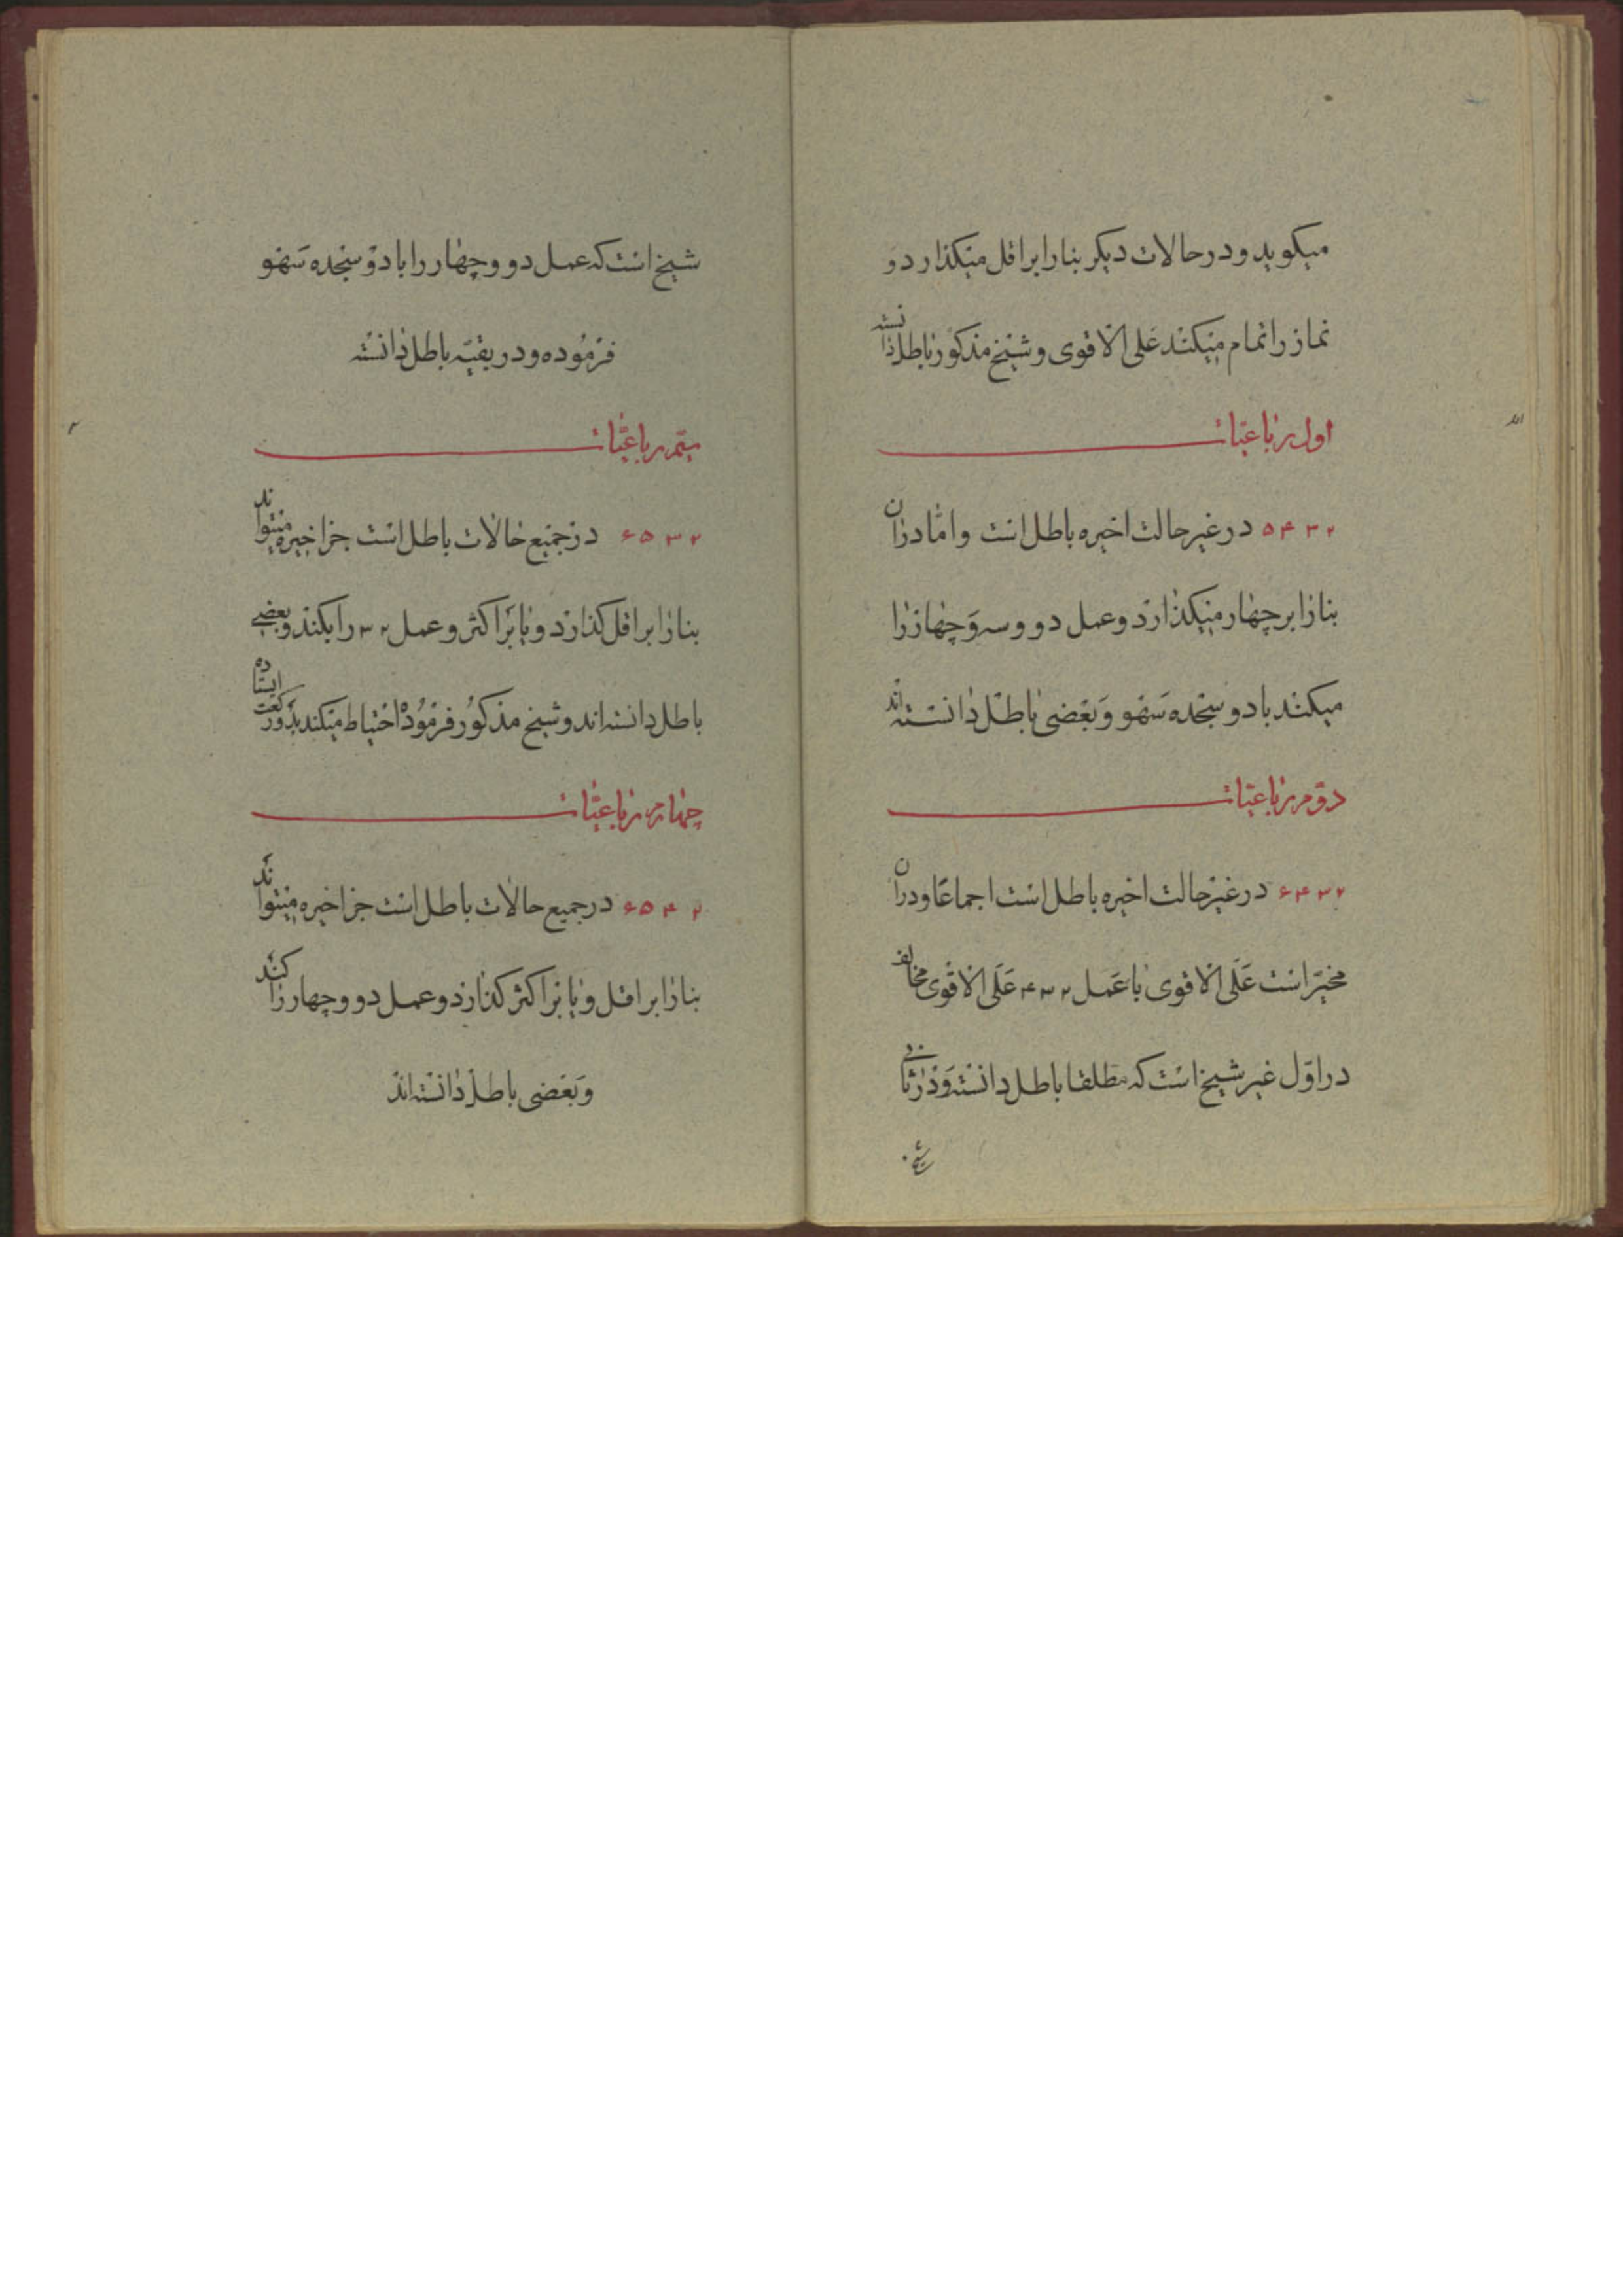 میکوید و در حالات دیکر بنا را بر اقل میکذارد و
نماز را تمام میکند علی الاقوی و شیخ مذکور باطل دانسته
اول رباعیات
۲ ۳ ۴ ۵ در غیر حالت اخیره باطل است و اما در ان
بنا را بر چهار میکذارد و عمل دو و سه و چهار را
میکند با دو سجده سهو و بعضی باطل دانسته اند
دوم رباعیات
۲ ۳ ۴ ۶ در غیر حالت اخیره باطل است اجماعا و در ان
مخیر است علی الاقوی با عمل ۲ ۳ ۴ علی الاقوی مخالف
در اول غیر شیخ است که مطلقا باطل دانسته و در ثانی
شیخ
شیخ است که عمل دو و چهار را با دو سجده سهو
فرموده و در بقیه باطل دانسته
سیم رباعیات
۲ ۳ ۵ ۶ در جمیع حالات باطل است جز اخیره میتواند
بنا را بر اقل کذارد و یا بر اکثر و عمل ۲ ۳ را بکند و بعضی
باطل دانسته اند و شیخ مذکور فرموده احتیاط میکند بدو رکعت ایستاده
چهارم رباعیات
۲ ۴ ۵ ۶ در جمیع حالات باطل است جز اخیره میتواند
بنا را بر اقل و یا بر اکثر کذارد و عمل دو و چهار را کند
و بعضی باطل دانسته اند